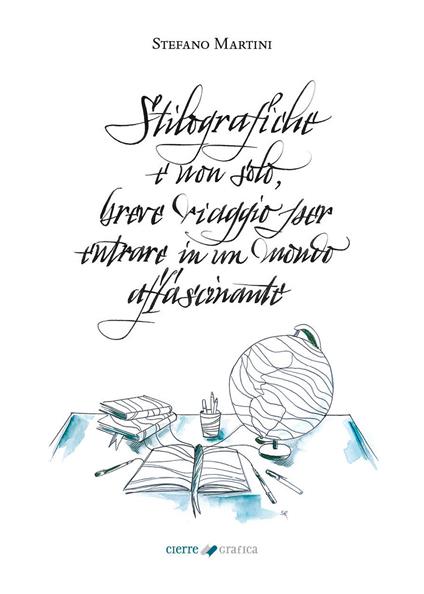 Stefano Martini
Stilografiche
e non solo,
breve viaggio per
entrare in un mondo
affascinante
SR
cierre grafica